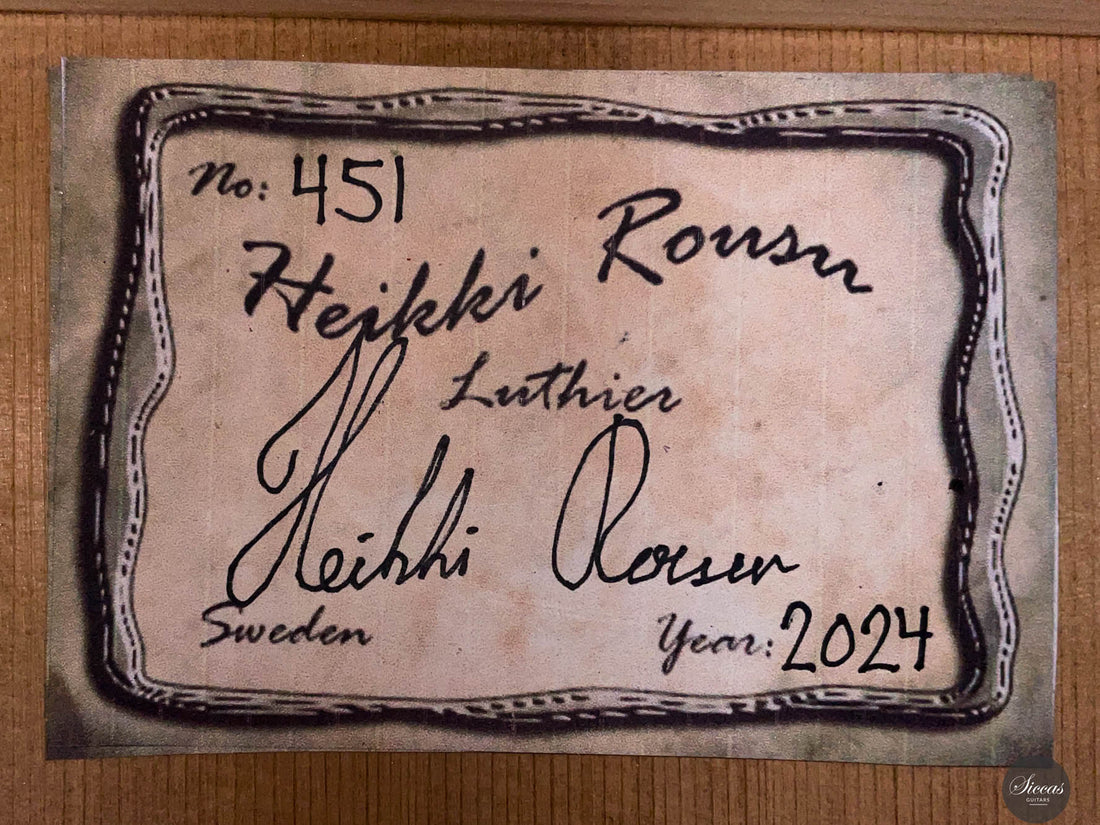 No: 451
Heikki Rousu
Luthier
Heikki Rousu
Sweden Year: 2024
Siccas
GUITARS